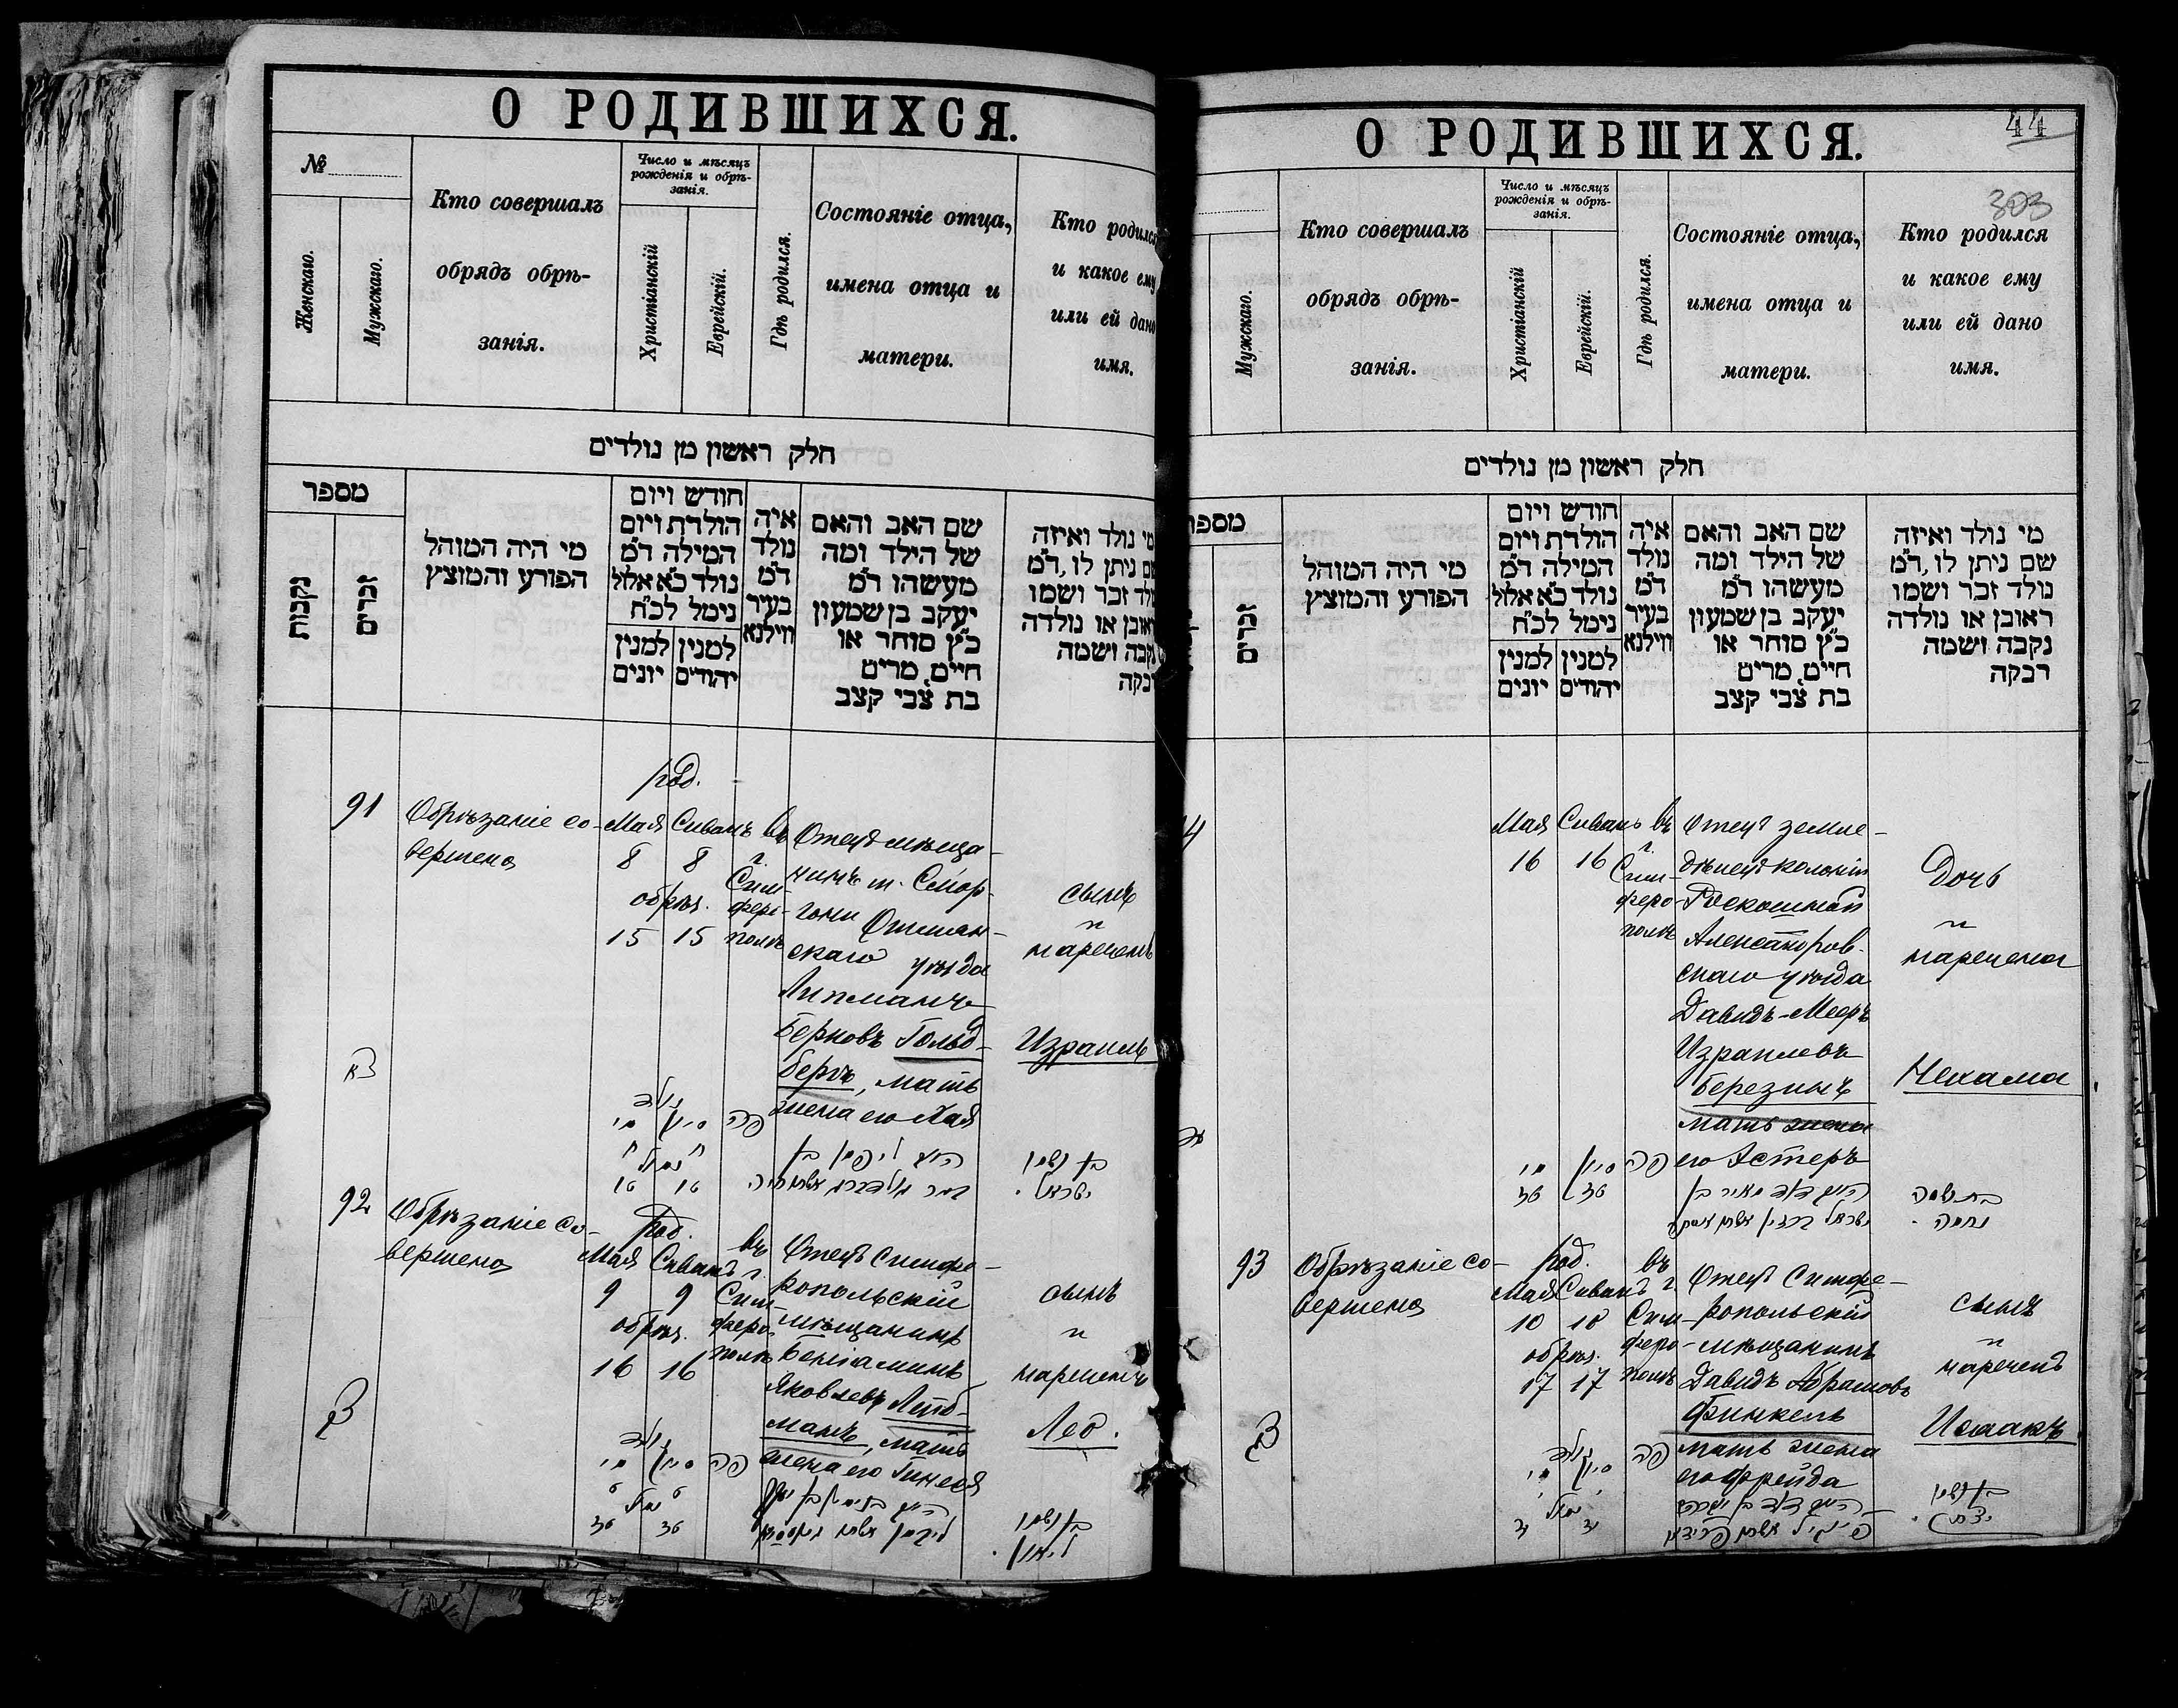 О РОДИВШИХСЯ.
№
Женскаго.
Мужскаго.
Кто совершалъ
обрядъ обрѣ-
занія.
Число и мѣсяцъ
рожденія и обрѣ-
занія.
Христіанскій
Еврейскій.
Гдѣ родился.
Состояніе отца,
имена отца и
матери.
Кто родился
и какое ему
или ей дано
имя.
חלק ראשון מן נולדים
מספר
נקבות
זכרים
מי היה המוהל
הפורע והמוצץ
חודש ויום
הולדת ויום
המילה ד״מ
נולד כ״א אלול
נימל לכ״ח
למנין למנין
יהודים יונים
איה
נולד
ד״מ
בעיר
ווילנא
שם האב והאם
של הילד ומה
מעשהו ד״מ
יעקב בן שמעון
כ״ץ סוחר או
חיים, מרים
בת צבי קצב
מי נולד ואיזה
שם ניתן לו, ד״מ
נולד זכר ושמו
ראובן או נולדה
נקבה ושמה
רבקה
91
Обрѣзаніе со-
вершено
род.
Мая Сиванъ
8 8
обрѣз.
15 15
въ
г.
Сим-
феро-
полѣ
Отецъ мѣща-
нинъ м. Смор-
гони Ошмян-
скаго уѣзда
Липманъ
Берковъ Гольд-
бергъ, мать
жена его Хая
сынъ
и
нареченъ
Израиль
92
Обрѣзаніе со-
вершено
род.
Мая Сиванъ
9 9
обрѣз.
16 16
въ
г.
Сим-
феро-
полѣ
Отецъ Симфе-
ропольскій
мѣщанинъ
Беніаминъ
Яковлевъ Либ-
манъ, мать
жена его Гинеся
сынъ
и
нареченъ
Лео.
О РОДИВШИХСЯ.
44
303
Мужскаго.
Кто совершалъ
обрядъ обрѣ-
занія.
Число и мѣсяцъ
рожденія и обрѣ-
занія.
Христіанскій
Еврейскій.
Гдѣ родился.
Состояніе отца,
имена отца и
матери.
Кто родился
и какое ему
или ей дано
имя.
חלק ראשון מן נולדים
מספר
זכרים
מי היה המוהל
הפורע והמוצץ
חודש ויום
הולדת ויום
המילה ד״מ
נולד כ״א אלול
נימל לכ״ח
למנין למנין
יהודים יונים
איה
נולד
ד״מ
בעיר
ווילנא
שם האב והאם
של הילד ומה
מעשהו ד״מ
יעקב בן שמעון
כ״ץ סוחר או
חיים, מרים
בת צבי קצב
מי נולד ואיזה
שם ניתן לו, ד״מ
נולד זכר ושמו
ראובן או נולדה
נקבה ושמה
רבקה
4
Мая Сиванъ
16 16
въ
г.
Сим-
феро-
полѣ
Отецъ земле-
дѣлецъ колоніи
Роскошной
Александров-
скаго уѣзда
Давидъ-Мееръ
Израилевъ
Березинъ
мать жена
его Эстеръ
Дочь
и
наречена
Нехама
בת ושמה
נחמה.
93
Обрѣзаніе со-
вершено
род.
Мая Сиванъ
10 10
обрѣз.
17 17
въ
г.
Сим-
феро-
полѣ
Отецъ Симфе-
ропольскій
мѣщанинъ
Давидъ Абрамовъ
Финкель
мать жена
его Фрейда
сынъ
и
нареченъ
Исаакъ